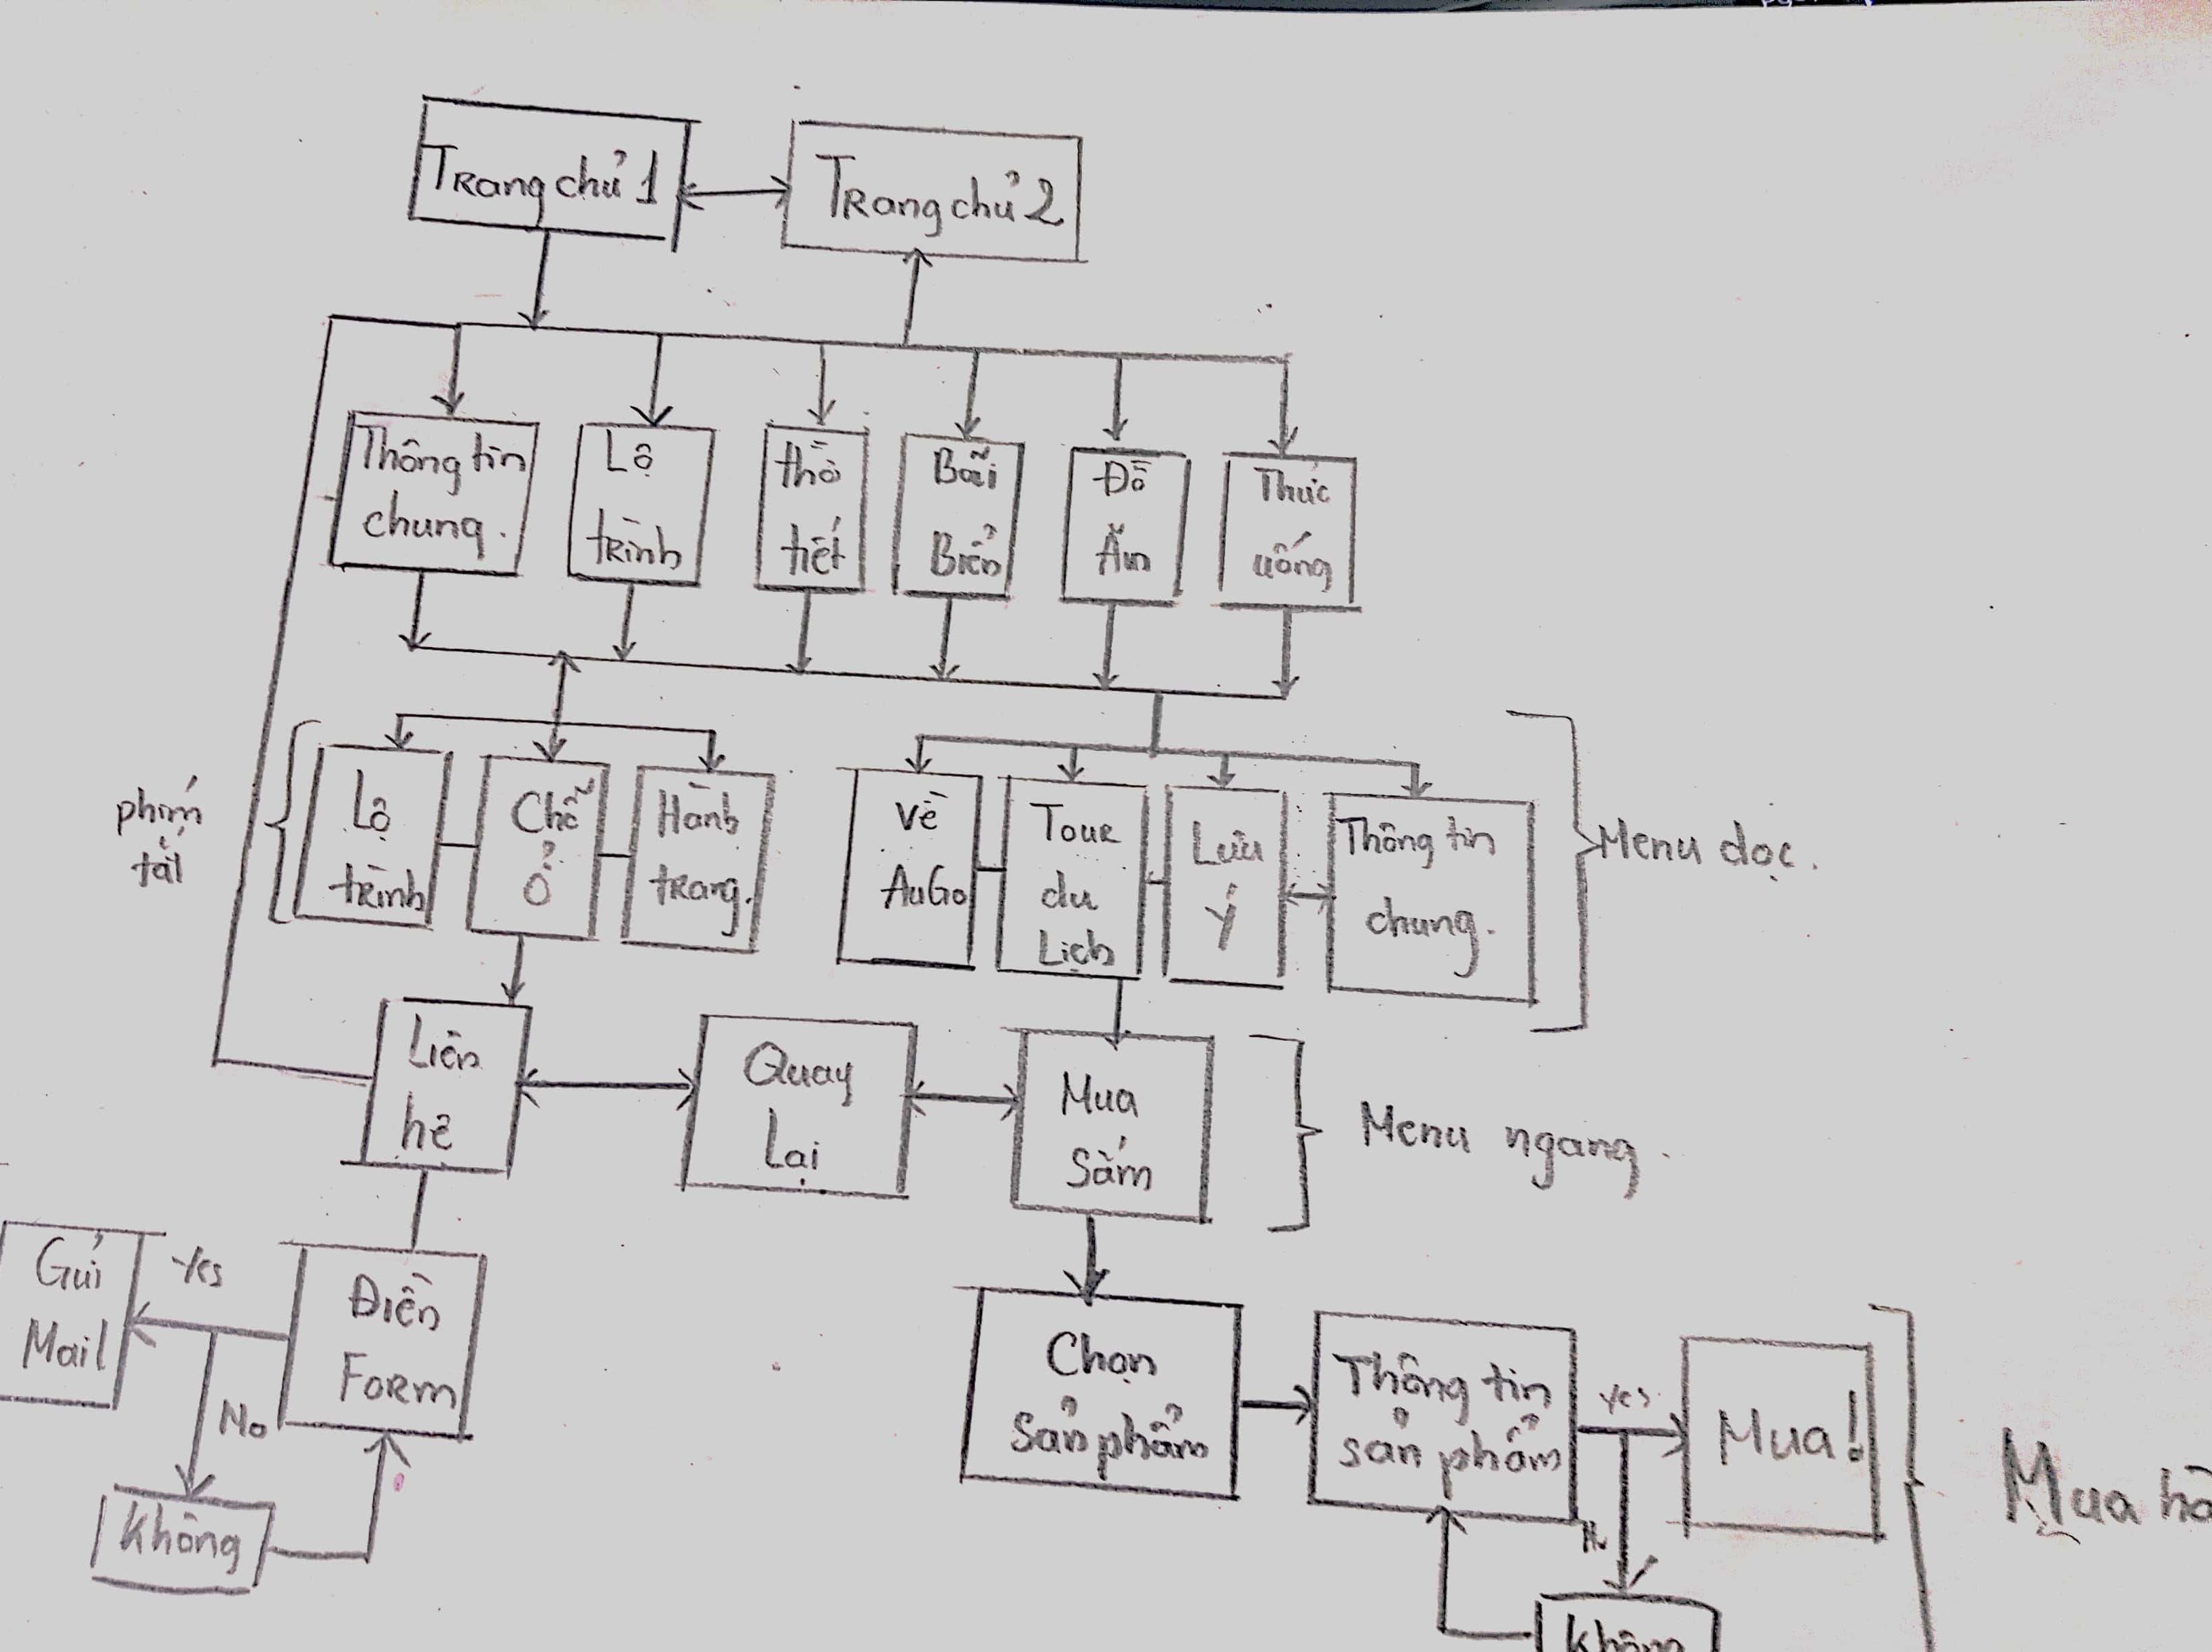 Trang chủ 1
Trang chủ 2
Thông tin
chung.
Lộ
trình
thời
tiết
Bãi
Biển
Đồ
Ăn
Thức
uống
phím
tắt
Lộ
trình
Chỗ
Ở
Hành
trang.
Về
AuGo
Tour
du
Lịch
Lưu
ý
Thông tin
chung.
Menu dọc.
Liên
hệ
Quay
Lại
Mua
Sắm
Menu ngang.
Gửi
Mail
Yes
Điền
Form
No
Không
Chọn
Sản phẩm
Thông tin
sản phẩm
Yes
Mua!
Mua
Không